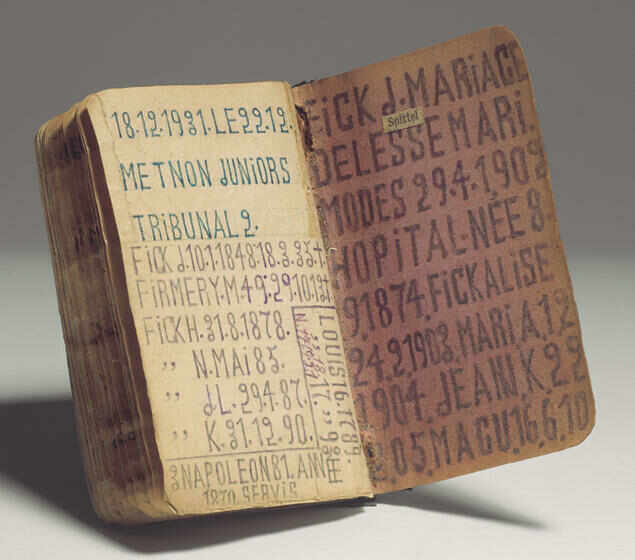 18.12.1931.LE22.12.
METNON JUNiORS
TRiBUNAL 2.
FiCK J.10.1.1848.18.
FiRMERY.M49.29.10.12
FiCKH.31.8.1878.
,, N.MAI 85.
,, JL.29.4.87.
,, K.31.12.90.
NAPOLEON81.ANNE
1870.SERVIS
LOUIS16.1789.
FiCK J.MARiAGE
Spittel
DELESSEMARi.
MODES 29.4.1909
HOPiTAL-NÉE 8
91874.FiCKALiSE
24.21903.MARi.A.12
904.JEANK.22
05.MAGU.16.6.10